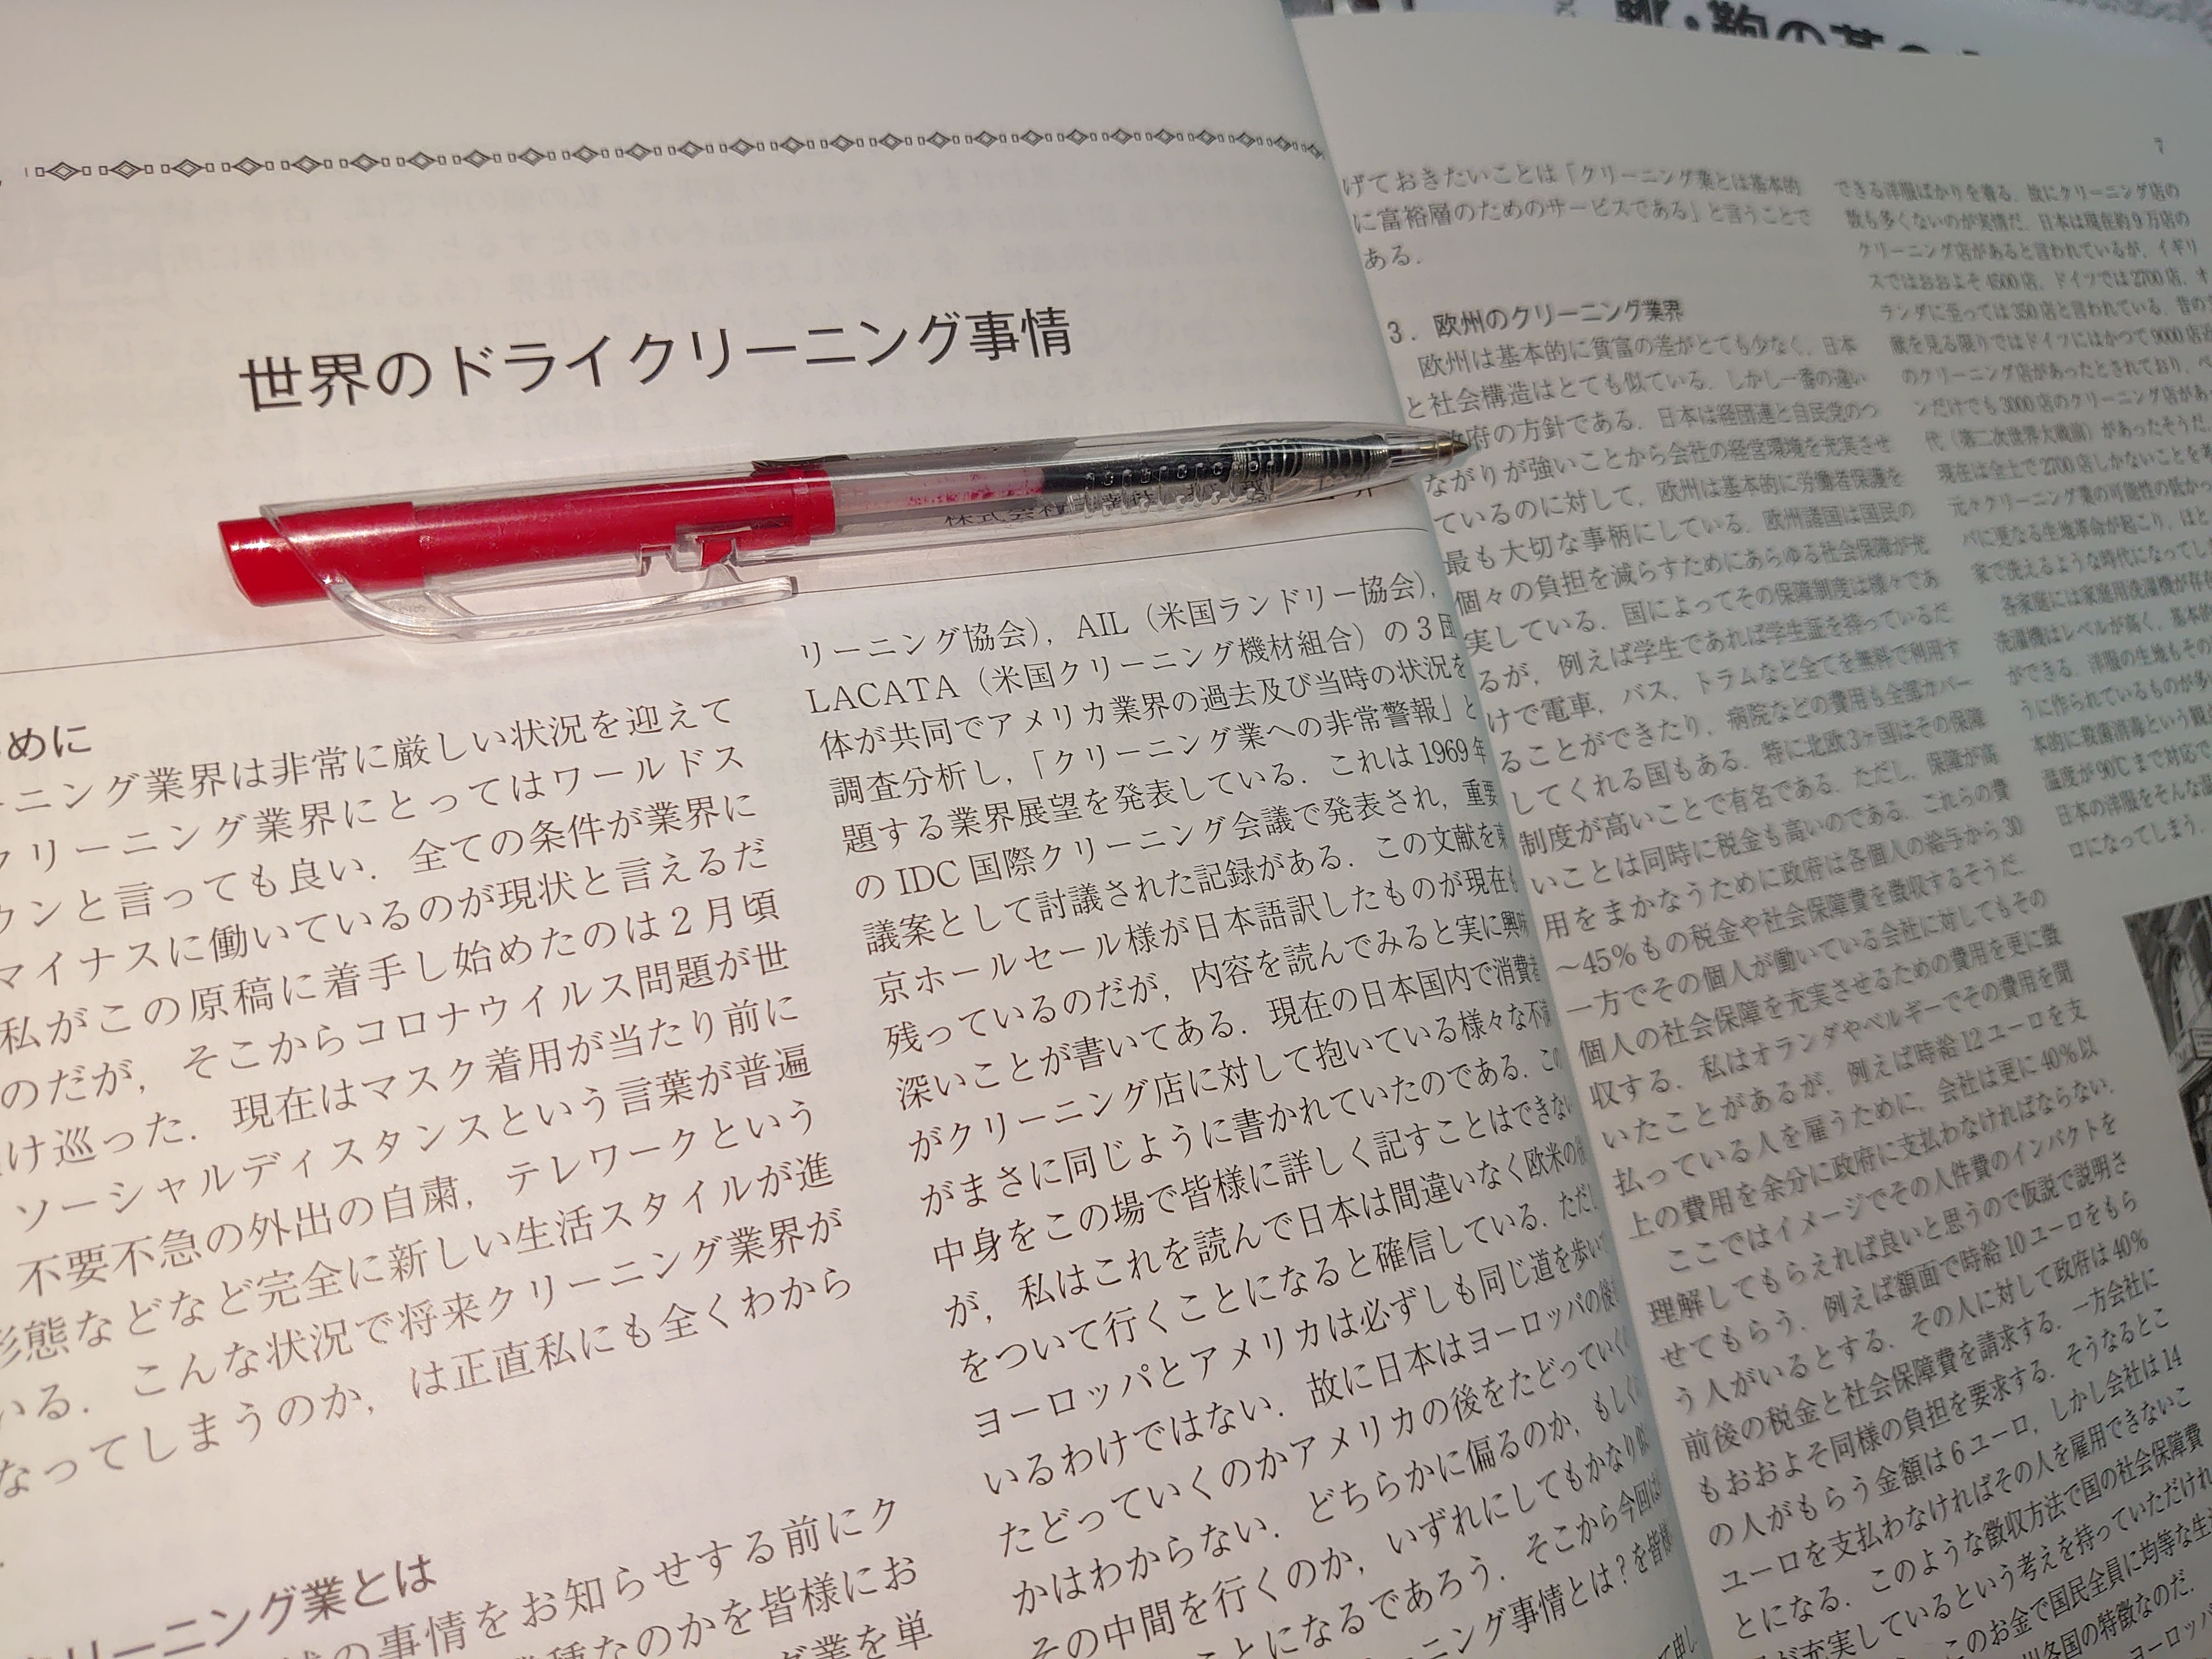 世界のドライクリーニング事情
株式会社
めに
ーニング業界は非常に厳しい状況を迎えて
クリーニング業界にとってはワールドス
ウンと言っても良い．全ての条件が業界に
マイナスに働いているのが現状と言えるだ
私がこの原稿に着手し始めたのは2月頃
のだが，そこからコロナウイルス問題が世
け巡った．現在はマスク着用が当たり前に
ソーシャルディスタンスという言葉が普遍
不要不急の外出の自粛，テレワークという
形態などなど完全に新しい生活スタイルが進
いる．こんな状況で将来クリーニング業界が
なってしまうのか，は正直私にも全くわから
リーニング業とは
の事情をお知らせする前にク
種なのかを皆様にお
業を単
リーニング協会），AIL（米国ランドリー協会），
LACATA（米国クリーニング機材組合）の3団
体が共同でアメリカ業界の過去及び当時の状況を
調査分析し，「クリーニング業への非常警報」と
題する業界展望を発表している．これは1969年
のIDC国際クリーニング会議で発表され，重要
議案として討議された記録がある．この文献を東
京ホールセール様が日本語訳したものが現在も
残っているのだが，内容を読んでみると実に興味
深いことが書いてある．現在の日本国内で消費者
がクリーニング店に対して抱いている様々な不満
がまさに同じように書かれていたのである．この
中身をこの場で皆様に詳しく記すことはできない
が，私はこれを読んで日本は間違いなく欧米の後
をついて行くことになると確信している．ただし
ヨーロッパとアメリカは必ずしも同じ道を歩いて
いるわけではない．故に日本はヨーロッパの後を
たどっていくのかアメリカの後をたどっていく
かはわからない．どちらかに偏るのか，もしく
その中間を行くのか，いずれにしてもかなり似
ことになるであろう．そこから今回は
ーニング事情とは？を皆様
7
げておきたいことは「クリーニング業とは基本的
に富裕層のためのサービスである」と言うことで
ある．
3．欧州のクリーニング業界
欧州は基本的に貧富の差がとても少なく，日本
と社会構造はとても似ている．しかし一番の違い
政府の方針である．日本は経団連と自民党のつ
ながりが強いことから会社の経営環境を充実させ
ているのに対して，欧州は基本的に労働者保護を
最も大切な事柄にしている．欧州諸国は国民の
個々の負担を減らすためにあらゆる社会保障が充
実している．国によってその保障制度は様々であ
るが，例えば学生であれば学生証を持っているだ
けで電車，バス，トラムなど全てを無料で利用す
ることができたり，病院などの費用も全額カバー
してくれる国もある．特に北欧3ヶ国はその保障
制度が高いことで有名である．ただし，保障が高
いことは同時に税金も高いのである．これらの費
用をまかなうために政府は各個人の給与から30
～45%もの税金や社会保障費を徴収するそうだ．
一方でその個人が働いている会社に対してもその
個人の社会保障を充実させるための費用を更に徴
収する．私はオランダやベルギーでその費用を聞
いたことがあるが，例えば時給12ユーロを支
払っている人を雇うために，会社は更に40%以
上の費用を余分に政府に支払わなければならない．
ここではイメージでその人件費のインパクトを
理解してもらえれば良いと思うので仮説で説明さ
せてもらう．例えば額面で時給10ユーロをもら
う人がいるとする．その人に対して政府は40%
前後の税金と社会保障費を請求する．一方会社に
もおおよそ同様の負担を要求する．そうなるとこ
の人がもらう金額は6ユーロ，しかし会社は14
ユーロを支払わなければその人を雇用できないこ
とになる．このような徴収方法で国の社会保障費
が充実しているという考えを持っていただけれ
このお金で国民全員に均等な生
各国の特徴なのだ．
できる洋服ばかりを着る．故にクリーニング店の
数も多くないのが実情だ．日本は現在約9万店の
クリーニング店があると言われているが，イギリ
スではおおよそ4500店，ドイツでは2700店，オ
ランダに至っては350店と言われている．昔の文
献を見る限りではドイツにはかつて9000店
のクリーニング店があったとされており，ベ
ンだけでも3000店のクリーニング店があ
代（第二次世界大戦前）があったそうだ．
現在は全土で2700店しかないことを考
元々クリーニング業の可能性の低かっ
パに更なる生地革命が起こり，ほと
家で洗えるような時代になってし
各家庭には家庭用洗濯機が存
洗濯機はレベルが高く，基本
ができる．洋服の生地もその
うに作られているものが多
本的に殺菌消毒という観
温度が90℃まで対応で
日本の洋服をそんな温
ロになってしまう．